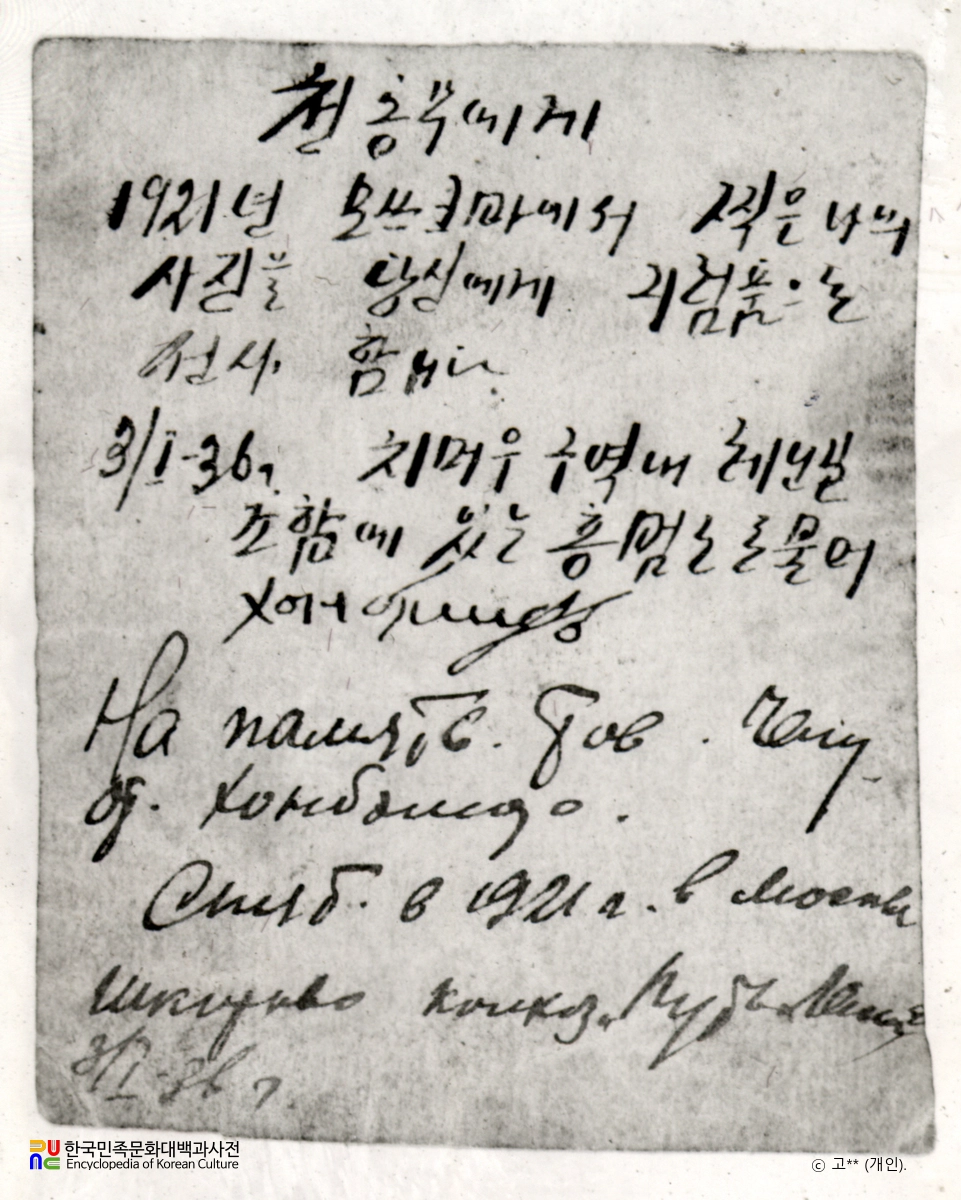 천흥무에게
1921년 모쓰크바에서 찍은 나의
사진을 당신에게 긔렴품으로
선사 함니다.
3/I-36г. 치머우 구역내 레닌길
조합에 있는 홍범도로부터
На память. Тов. Чену
от. Хонбомдо.
Снят. в 1921 г. в Москве
Шкотово колхоз
3/I-36 г.
한국민족문화대백과사전
Encyclopedia of Korean Culture
ⓒ 고** (개인).